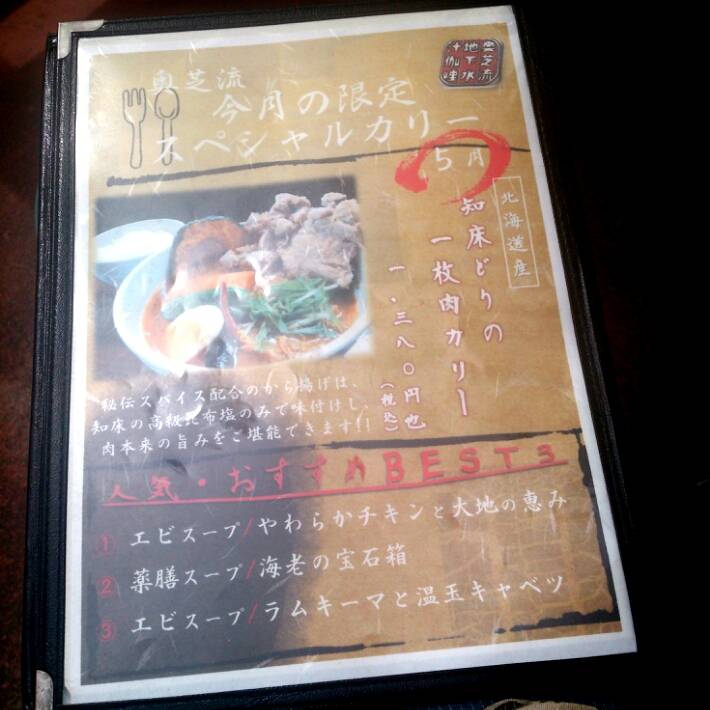 奥芝流
地下水
汁伽哩
奥芝流
今月の限定
スペシャルカリー
5月
北海道産
知床どりの
一枚肉カリー
一・三八〇円也
(税込)
秘伝スパイス配合のから揚げは、
知床の高級昆布塩のみで味付けし、
肉本来の旨みをご堪能できます!!
人気・おすすめBEST3
① エビスープ/やわらかチキンと大地の恵み
② 薬膳スープ/海老の宝石箱
③ エビスープ/ラムキーマと温玉キャベツ